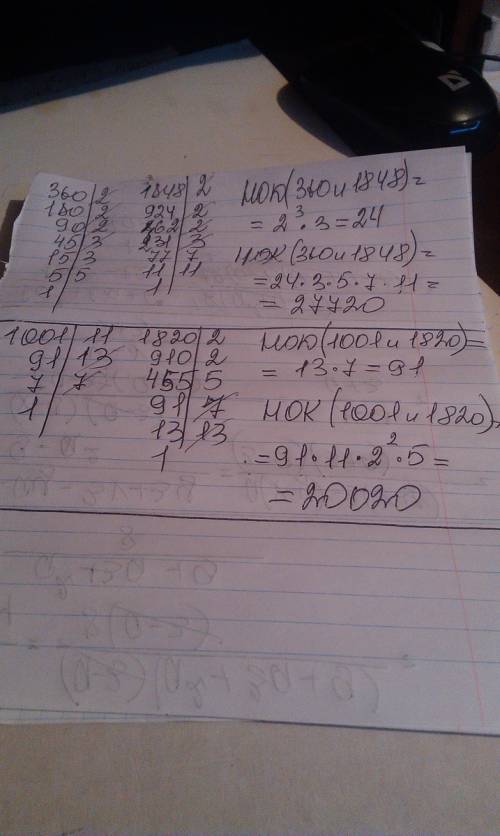 360 | 2 1848 | 2 НОД(360 и 1848)=
180 | 2 924 | 2 = 2³·3=24
90 | 2 462 | 2
45 | 3 231 | 3 НОК(360 и 1848)=
15 | 3 77 | 7 =24·3·5·7·11=
5 | 5 11 | 11 = 27720
1 | 1 |
1001 | 11 1820 | 2 НОД(1001 и 1820)=
91 | 13 910 | 2 = 13·7=91
7 | 7 455 | 5
1 | 91 | 7 НОК(1001 и 1820)=
13 | 13 =91·11·2²·5=
1 = 20020